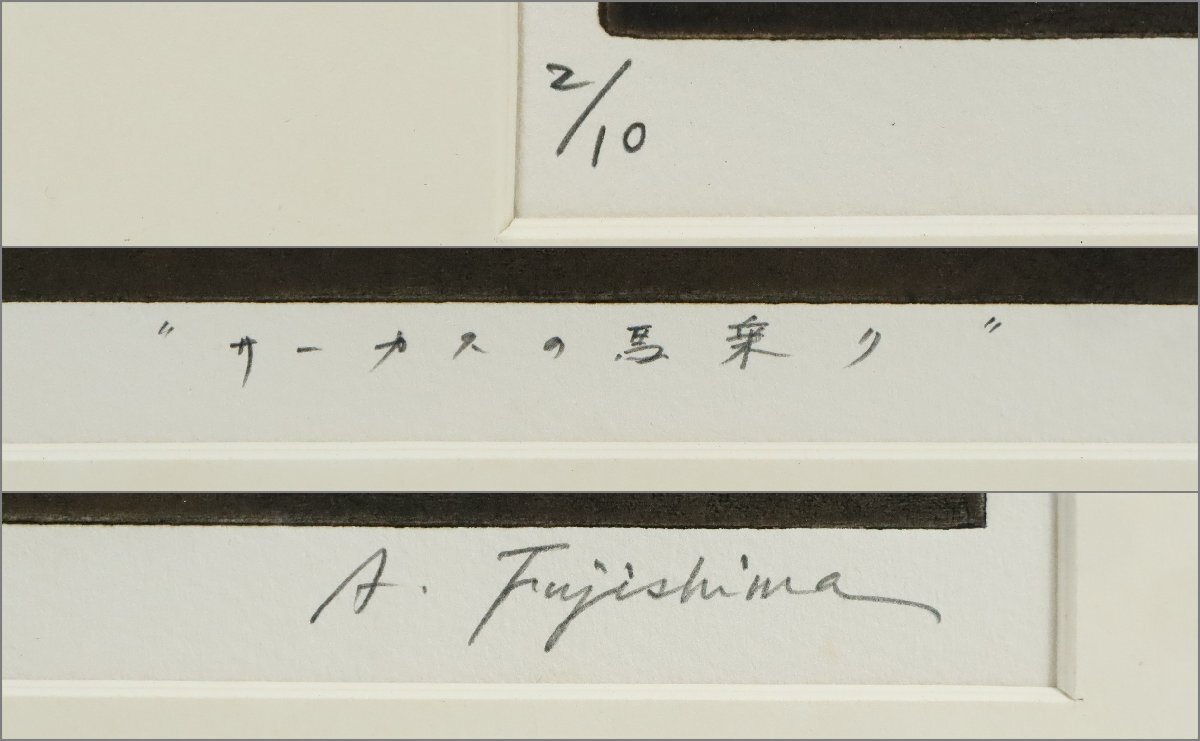 2/10
"サーカスの馬乗り"
A. Fujishima